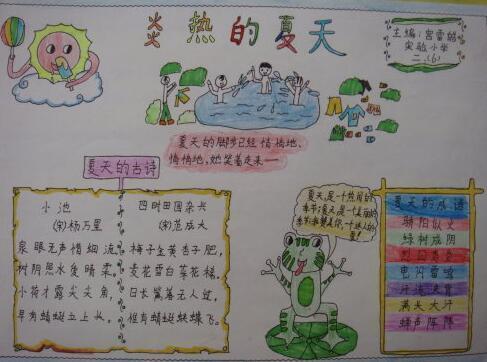 炎热的夏天
主编:宫雷皓
实验小学
二.(6)
夏天的脚步已经悄悄地、
悄悄地,她笑着走来——
夏天的古诗
小池
(宋)杨万里
泉眼无声惜细流,
树阴照水爱晴柔。
小荷才露尖尖角,
早有蜻蜓立上头。
四时田园杂兴
(宋)范成大
梅子金黄杏子肥,
麦花雪白菜花稀。
日长篱落无人过,
但有蜻蜓蛱蝶飞。
夏天,是一个热闹的
季节;夏天,是一个美丽的
夏天的成语
骄阳似火
绿树成阴
烈日炎炎
电闪雷鸣
满头大汗
蝉声阵阵